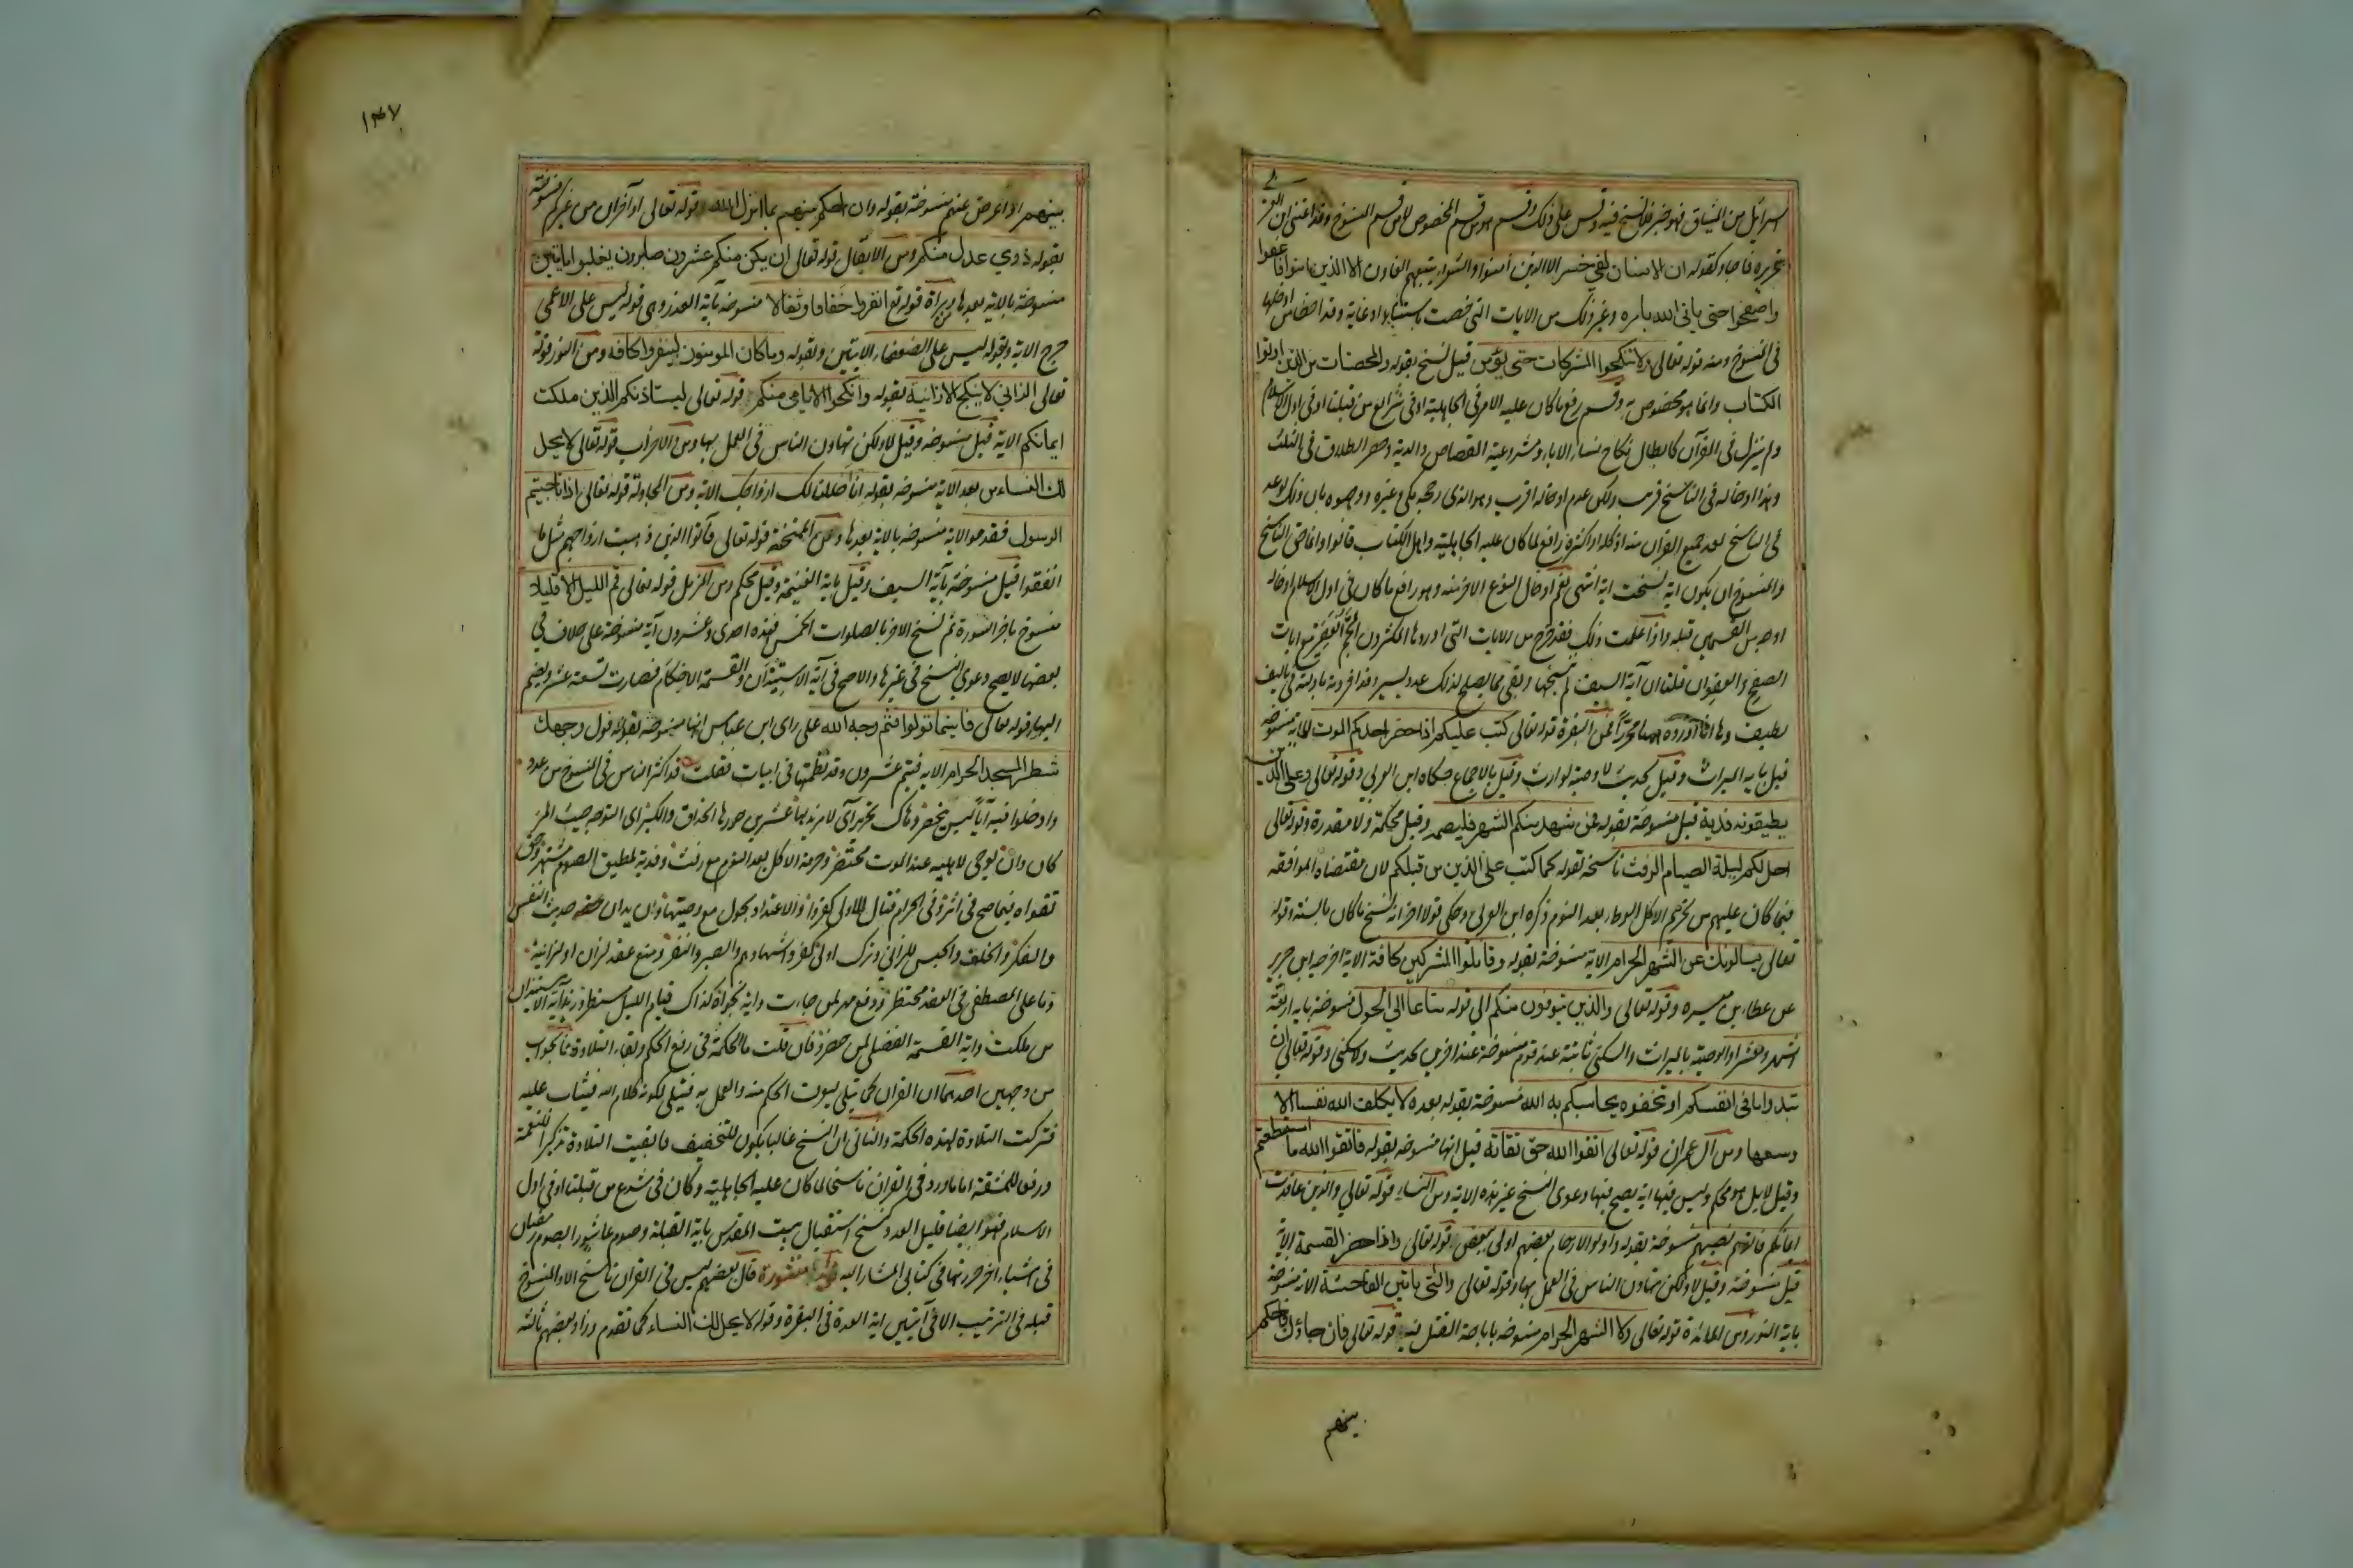 اسرائيل من الميثاق فهو خبر فلا نسخ فيه وقس على ذلك وقسم هو من قسم المخصوص لا من قسم المنسوخ وقد اعتنى ابن العربي
بتحريره فاجاد كقوله ان الانسان لفي خسر الا الذين آمنوا والشعراء يتبعهم الغاون الا الذين آمنوا فاعفوا
واصفحوا حتى ياتى الله بامره وغير ذلك من الايات التي خصت باستثناء او غاية وقد اخطأ من ادخلها
فى المنسوخ ومنه قوله تعالى ولا تنكحوا المشركات حتى يؤمن قيل نسخ بقوله والمحصنات من الذين اوتوا
الكتاب وانما هو مخصوص به وقسم رفع ما كان عليه الامر فى الجاهلية او فى شرائع من قبلنا او فى اول الاسلام
ولم ينزل فى القرآن كابطال نكاح نساء الاباء ومشروعية القصاص والدية وحصر الطلاق فى الثلث
وهذا ادخاله فى الناسخ قريب ولكن عدم ادخاله اقرب وهو الذى رجحه مكى وغيره ووجهوه بان ذلك لو عد
فى الناسخ لعد جميع القرآن منه اذ كله او اكثره رافع لما كان عليه الجاهلية واهل الكتاب قالوا وانما حق الناسخ
والمنسوخ ان يكون اية نسخت اية انتهى نعم ادخال النوع الاخر منه وهو رافع ما كان فى اول الاسلام ادخاله
اوجه من القسمين قبله واذا علمت ذلك فقد خرج من الايات التى اوردها المكثرون الجم الغفير مع ايات
الصفح والعفو ان قلنا ان آية السيف لم تنسخها وبقى مما يصلح لذلك عدد يسير وقد افردته بادلته فى تاليف
لطيف وها انا اورده هنا محررا فمن البقرة قوله تعالى كتب عليكم اذا حضر احدكم الموت الاية منسوخة
قيل باية الميراث وقيل بحديث لا وصية لوارث وقيل بالاجماع حكاه ابن العربي وقوله تعالى وعلى الذين
يطيقونه فدية قيل منسوخة بقوله فمن شهد منكم الشهر فليصمه وقيل محكمة ولا مقدرة وقوله تعالى
احل لكم ليلة الصيام الرفث ناسخة لقوله كما كتب على الذين من قبلكم لان مقتضاه الموافقة
فيما كان عليهم من تحريم الاكل والوطء بعد النوم ذكره ابن العربى وحكى قولا اخر انه نسخ ما كان بالسنة وقوله
تعالى يسالونك عن الشهر الحرام الاية منسوخة بقوله وقاتلوا المشركين كافة الاية اخرجه ابن جرير
عن عطاء بن ميسره وقوله تعالى والذين يتوفون منكم الى قوله متاعا الى الحول منسوخة باية اربعة
اشهر وعشرا والوصية بالميراث والسكنى ثابتة عند قوم منسوخة عند اخرين بحديث ولا سكنى وقوله تعالى ان
تبدوا ما فى انفسكم او تخفوه يحاسبكم به الله منسوخة بقوله بعده لا يكلف الله نفسا الا
وسعها ومن آل عمران قوله تعالى اتقوا الله حق تقاته قيل انها منسوخه بقوله فاتقوا الله ما استطعتم
وقيل لا بل هو محكم وليس فيها اية يصح فيها دعوى النسخ غير هذه الاية ومن النساء قوله تعالى والذين عاقدت
ايمانكم فآتوهم نصيبهم منسوخة بقوله واولوا الارحام بعضهم اولى ببعض قوله تعالى واذا حضر القسمة الاية
قيل منسوخة وقيل لا ولكن تهاون الناس فى العمل بها وقوله تعالى والتى ياتين الفاحشة الاية منسوخة
باية النور ومن المائدة قوله تعالى ولا الشهر الحرام منسوخه باباحة القتل فيه قوله تعالى فان جاؤك فاحكم
بينهم
١٣٧
بينهم او اعرض عنهم منسوخة بقوله وان احكم بينهم بما انزل الله قوله تعالى او آخران من غيركم منسوخة
بقوله ذوي عدل منكم ومن الانفال قوله تعالى ان يكن منكم عشرون صابرون يغلبوا مايتين
منسوخة بالاية بعدها ومن براة قوله تع انفروا خفافا وثقالا منسوخه بآية العذر وهى قوله ليس على الاعمى
حرج الاية وبقوله ليس على الضعفاء الايتين وبقوله وما كان المومنون لينفروا كافه ومن النور قوله
تعالى الزاني لا ينكح الا زانية بقوله وانكحوا الايامى منكم قوله تعالى ليستاذنكم الذين ملكت
ايمانكم الاية قيل منسوخه وقيل لا ولكن تهاون الناس فى العمل بها ومن الاحزاب قوله تعالى لا يحل
لك النساء من بعد الاية منسوخه بقوله انا احللنا لك ازواجك الاية ومن المجادلة قوله تعالى اذا ناجيتم
الرسول فقدموا الاية منسوخه بالاية بعدها ومن الممتحنة قوله تعالى فآتوا الذين ذهبت ازواجهم مثل ما
انفقوا قيل منسوخة بآية السيف وقيل باية الغنيمة وقيل محكم ومن المزمل قوله تعالى قم الليل الا قليلا
منسوخ باخر السورة ثم نسخ الاخر بالصلوات الخمس فهذه احدى وعشرون آية منسوخة على خلاف في
بعضها لا يصح دعوى النسخ فى غيرها والاصح فى آية الاستيذان والقسمة الاحكام فصارت تسعة عشر ويضم
اليها قوله تعالى فاينما تولوا فثم وجه الله على راى ابن عباس انها منسوخة بقوله فول وجهك
شطر المسجد الحرام الايه فيتم عشرون وقد نظمتها فى ابيات فقلت قد اكثر الناس فى المنسوخ من عدد
وادخلوا فيه آيا ليس ينحصر وهاك تحرير آى لا مزيد بها عشرين حررها الحذاق والكبر آى التوجه حيث المرء
كان وان يوصى لاهليه عند الموت محتضر وحرمة الاكل بعد النوم مع رفث وفدية لمطيق الصوم مشتهر وحق
تقواه فيما صح فى اثر وفى الحرام قتال للاولى كفروا والاعتداد بحول مع وصيتها وان يدان حديث النفس
والفكر والحلف والحبس للزاني وترك اولى كفر واشهادهم والصبر والنفر ومنع عقد لزان او لزانية
وما على المصطفى فى العقد محتظر ودفع مهر لمن جاءت واية نجواه كذاك قيام الليل مستطر وزيد آية الاستيذان
من ملكت واية القسمة الفضلى لمن حضروا فان قلت ما الحكمة فى رفع الحكم وبقاء التلاوة فالجواب
من وجهين احدهما ان القرآن كما يتلى ليعرف الحكم منه والعمل به فيتلى لكونه كلام الله فيثاب عليه
فتركت التلاوة لهذه الحكمة والثانى ان النسخ غالبا يكون للتخفيف فابقيت التلاوة تذكيرا للنعمة
ورفع المشقة اما ما ورد فى القرآن ناسخا لما كان عليه الجاهلية وكان فى شرع من قبلنا او فى اول
الاسلام فهو ايضا قليل العدد كنسخ استقبال بيت المقدس باية القبلة وصوم عاشورا بصوم رمضان
فى اشياء اخر حررتها فى كتابى المشار اليه فوائد منثورة قال بعضهم ليس فى القران ناسخ الا والمنسوخ
قبله فى الترتيب الا فى آيتين اية العدة فى البقرة وقوله لا يحل لك النساء كما تقدم وزاد بعضهم ثالثه